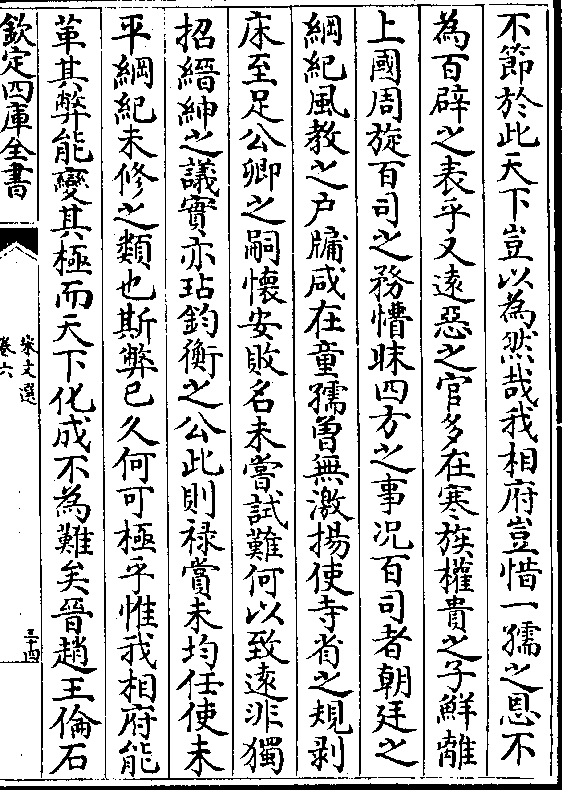 不節於此天下豈以為然哉我相府豈惜一孺之恩不
為百辟之表乎又逺惡之官多在寒族權貴之子鮮離
上國周旋百司之務懵昧四方之事况百司者朝廷之
綱紀風教之户牖咸在童孺曽無激揚使寺省之規剥
床至足公卿之嗣懷安敗名未嘗試難何以致逺非獨
招縉紳之議實亦玷鈞衡之公此則禄賞未均任使未
平綱紀未修之類也斯弊已久何可極乎惟我相府能
革其弊能變其極而天下化成不為難矣晉趙王倫石
欽定四庫全書
宋文選
卷六
三十四